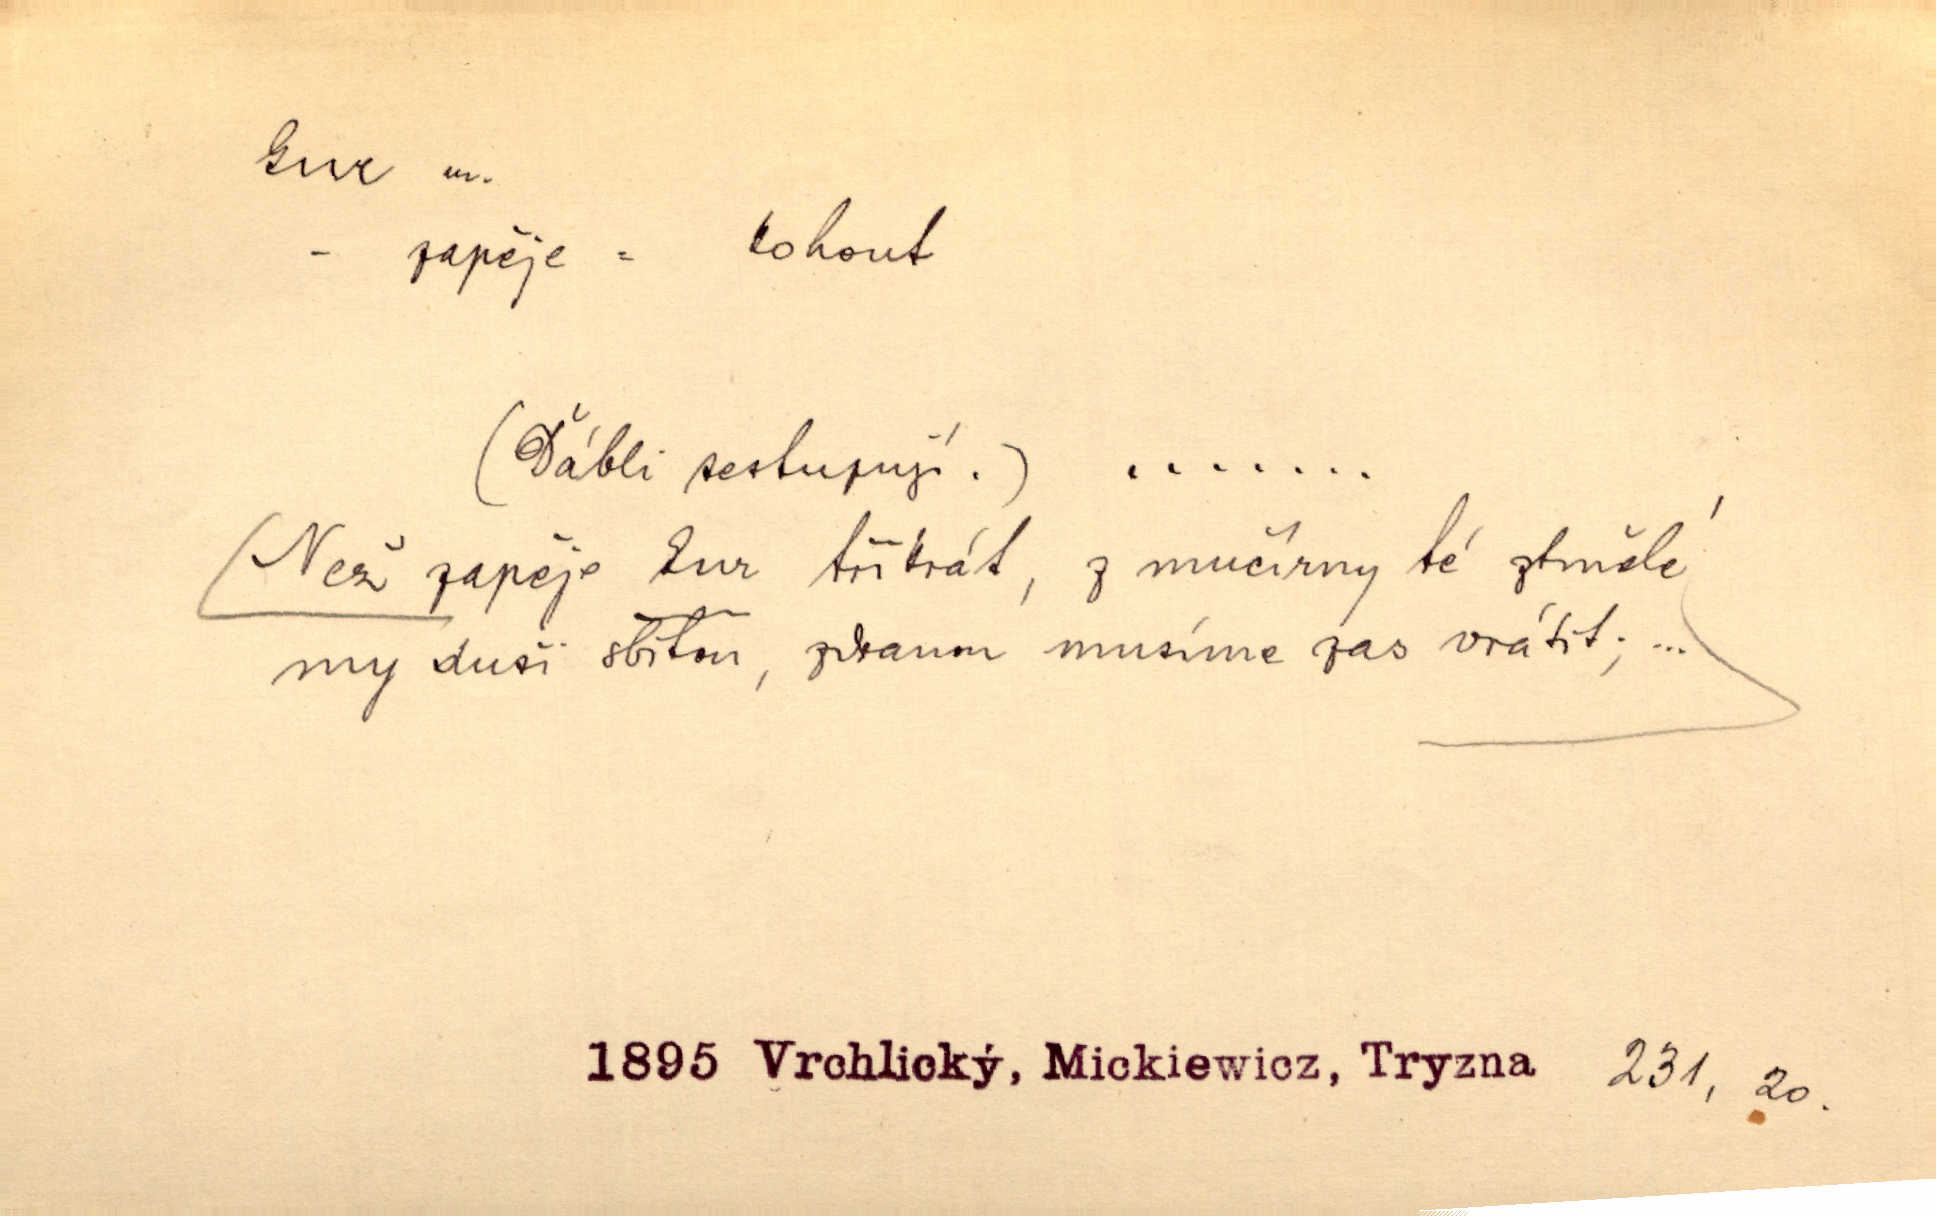 Kur m.
- zapěje = kohout
(Ďábli sestupují.) ........
(Než zapěje kur třikrát, z mučírny té ztmělé
my duši sbitou, zdranou musíme zas vrátit; ...
1895 Vrchlický, Mickiewicz, Tryzna 231, 20.